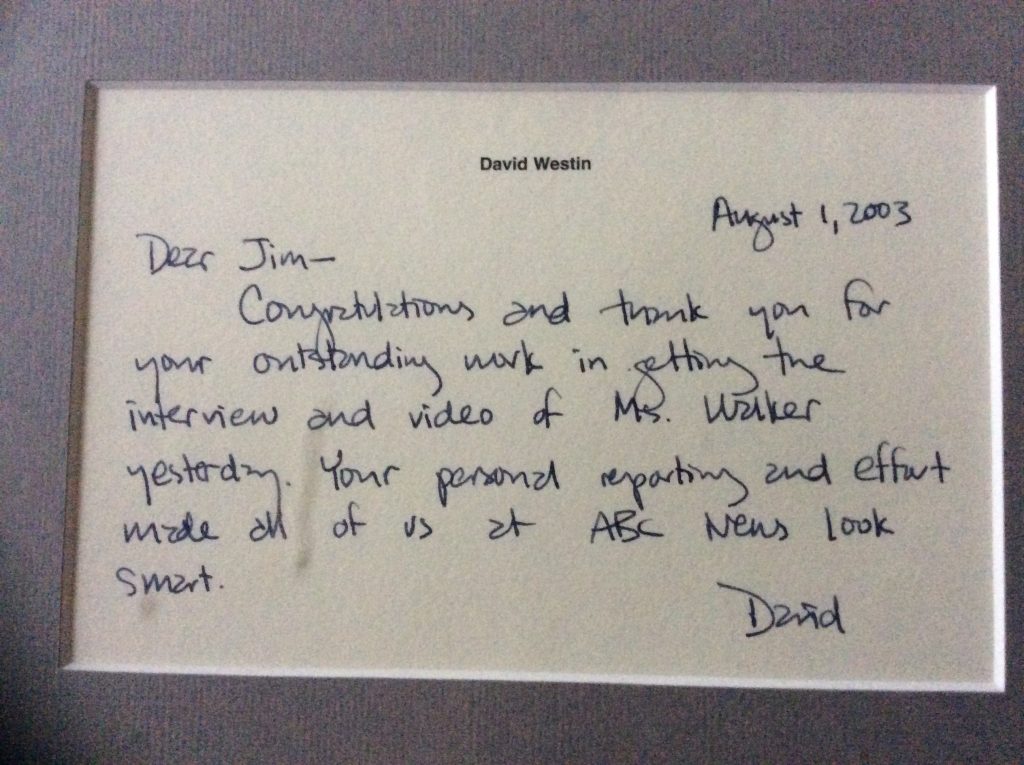 David Westin
August 1, 2003
Dear Jim—
Congratulations and thank you for
your outstanding work in getting the
interview and video of Ms. Walker
yesterday. Your personal reporting and effort
made all of us at ABC News look
smart.
David